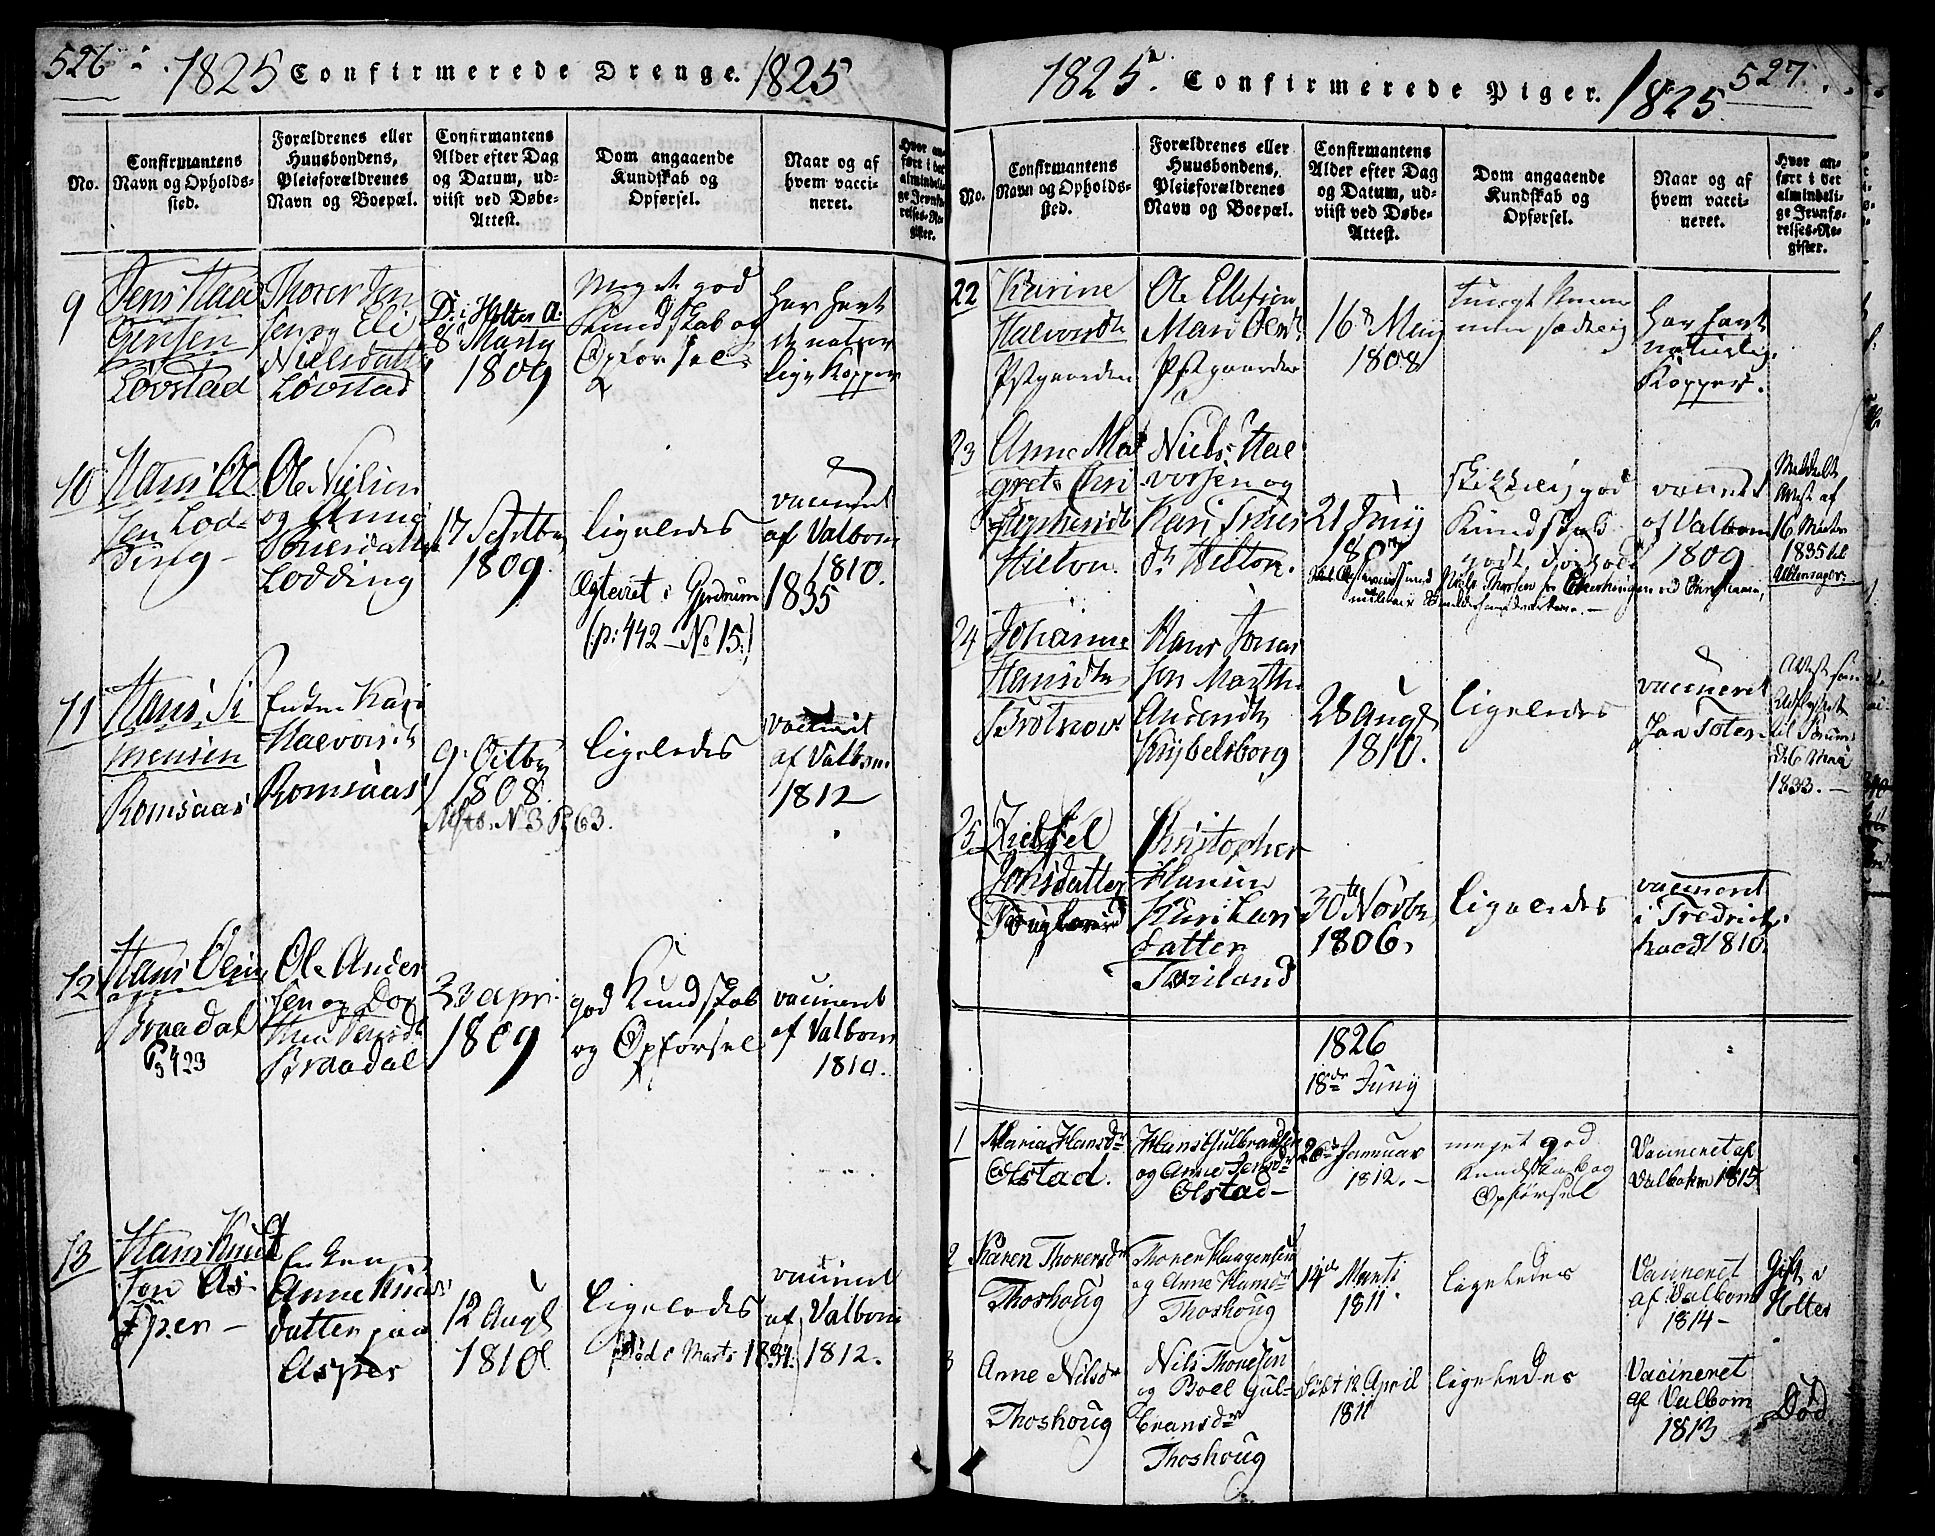 526
1825 Confirmerede Drenge. 1825
No.
Confirmantens
Navn og Opholds-
sted.
Forældrenes eller
Huusbondens,
Pleieforældrenes
Navn og Boepæl.
Confirmantens
Alder efter Dag
og Datum, ud-
viist ved Døbe-
Attest.
Dom angaaende
Kundskab og
Opførsel.
Naar og af
hvem vacci-
neret.
Hvor an-
ført i det
almindeli-
ge Jevnfø-
relses-Re-
gister.
9
Jens
Jensen
Løvstad
Thorer Jen
sen og Eli
Nielsdatter
Løvstad
D. i Holter A.
8de Marty
1809
Meget god
Kundskab og
Opførsel
har havt
de natur
lige Kopper
10
Hans Ol
sen Lod-
ding
Ole Nielsen
og
Lodding
17 Septbr
1809
ligeledes
Ægteviet i Gjerdrum 1835
(p: 442 - No 15.)
vaccineret
af Valbom
1810.
11
Hans Si
monsen
Romsaas
Enken Kari
Halvorsdt
Romsaas
9. Octbr
1808.
ligeledes
vaccineret
af Valbom
1812
12
Hans Olsen
Braadal
P 423
Ole Ander
sen og Dor
thea Jensdt
Braadal
23 april
1809
god Kundskab
og Opførsel
vaccineret
af Valbom
1810.
13
Hans Knud
sen As-
per
Enken
Anne Knuds
datter paa
Asper
12 Augt
1810
ligeledes
Død i Marts 1834
vaccineret
af Valbom
1812.
1825. Confirmerede Piger. 1825
527.
No.
Confirmantens
Navn og Opholds-
sted.
Forældrenes eller
Huusbondens,
Pleieforældrenes
Navn og Boepæl.
Confirmantens
Alder efter Dag
og Datum, ud-
viist ved Døbe-
Attest.
Dom angaaende
Kundskab og
Opførsel.
Naar og af
hvem vacci-
neret.
Hvor an-
ført i det
almindeli-
ge Jevnfø-
relses-Re-
gister.
22
Karine
Halvorsdt
Pstgaarden
Ole Ellefsen
Mari Olsdt
Pstgaarden
16de May
1808
tungt Nemme
men sædelig
har havt
naturlig
Kopper.
23
Anne Mar
grete Chri
stophersdt
Hilton.
Niels Hal
vorsen og
Kari
dt Hilton.
21 Juny
1807
skikkelig god
Kundskab
godt Forhold
vaccineret
af Valbom
1809
Meddelt
Attest af
16 Marts
1835 til
24
Johanne
Hansdtr
Hans Jonas
sen Marthe
Andersdtr
Knybelsborg
28 Augt
1810.
ligeledes
vaccineret
Jan Toten
Attest
til
1833.
25
Jonsdatter
Christopher
Hansen
Kari Lars
datter
30te Novbr
1806.
ligeledes
vaccineret
i Fredriks
hald 1810.
1826
18de Juny
1
Maria Hansdr
Olstad.
Hans Gulbrandsen
og Anne Jensdr
Olstad
26de Januar
1812.
meget god
Kundskab og
Opførsel
Vaccineret af
Valbohm 1815
2
Karen Thorersdr
Thoshoug
Thorer Haagensen
og Anne Hansdr
Thoshoug
14de Marti
1811.
ligeledes
Vaccineret
af Valbom
1814
Gift i
Holter
3
Anne Nilsdr
Thoshoug
Nils Thoresen
og Boel Gul-
bransdr
Thoshoug
født 12 April
1811
ligeledes
Vaccineret
af Valbom
1813
Død